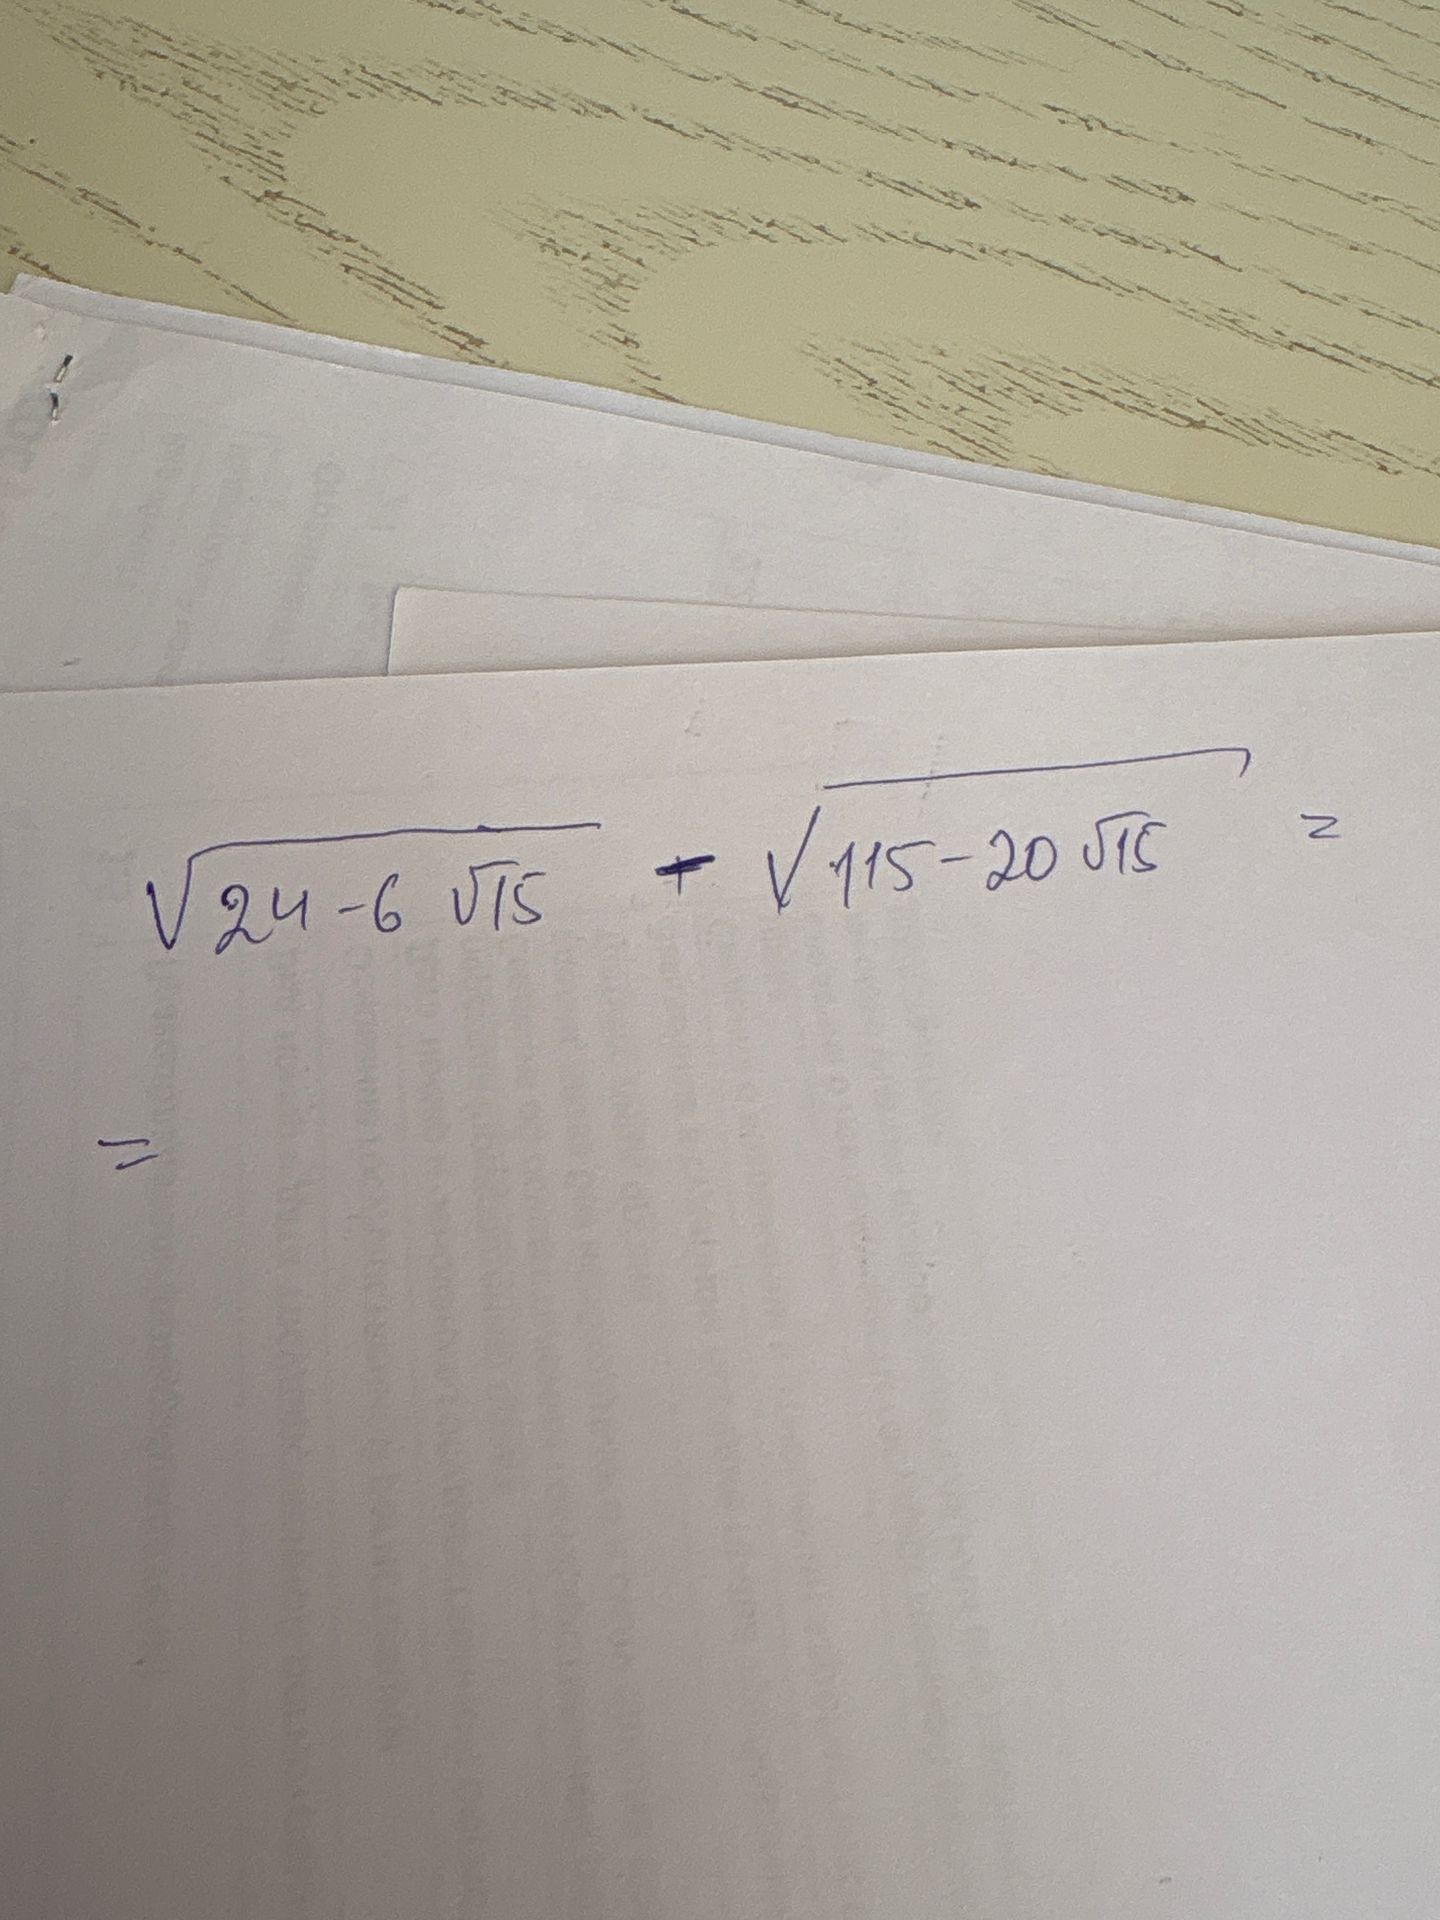 √24-6 √15 + √115-20 √15 =
=